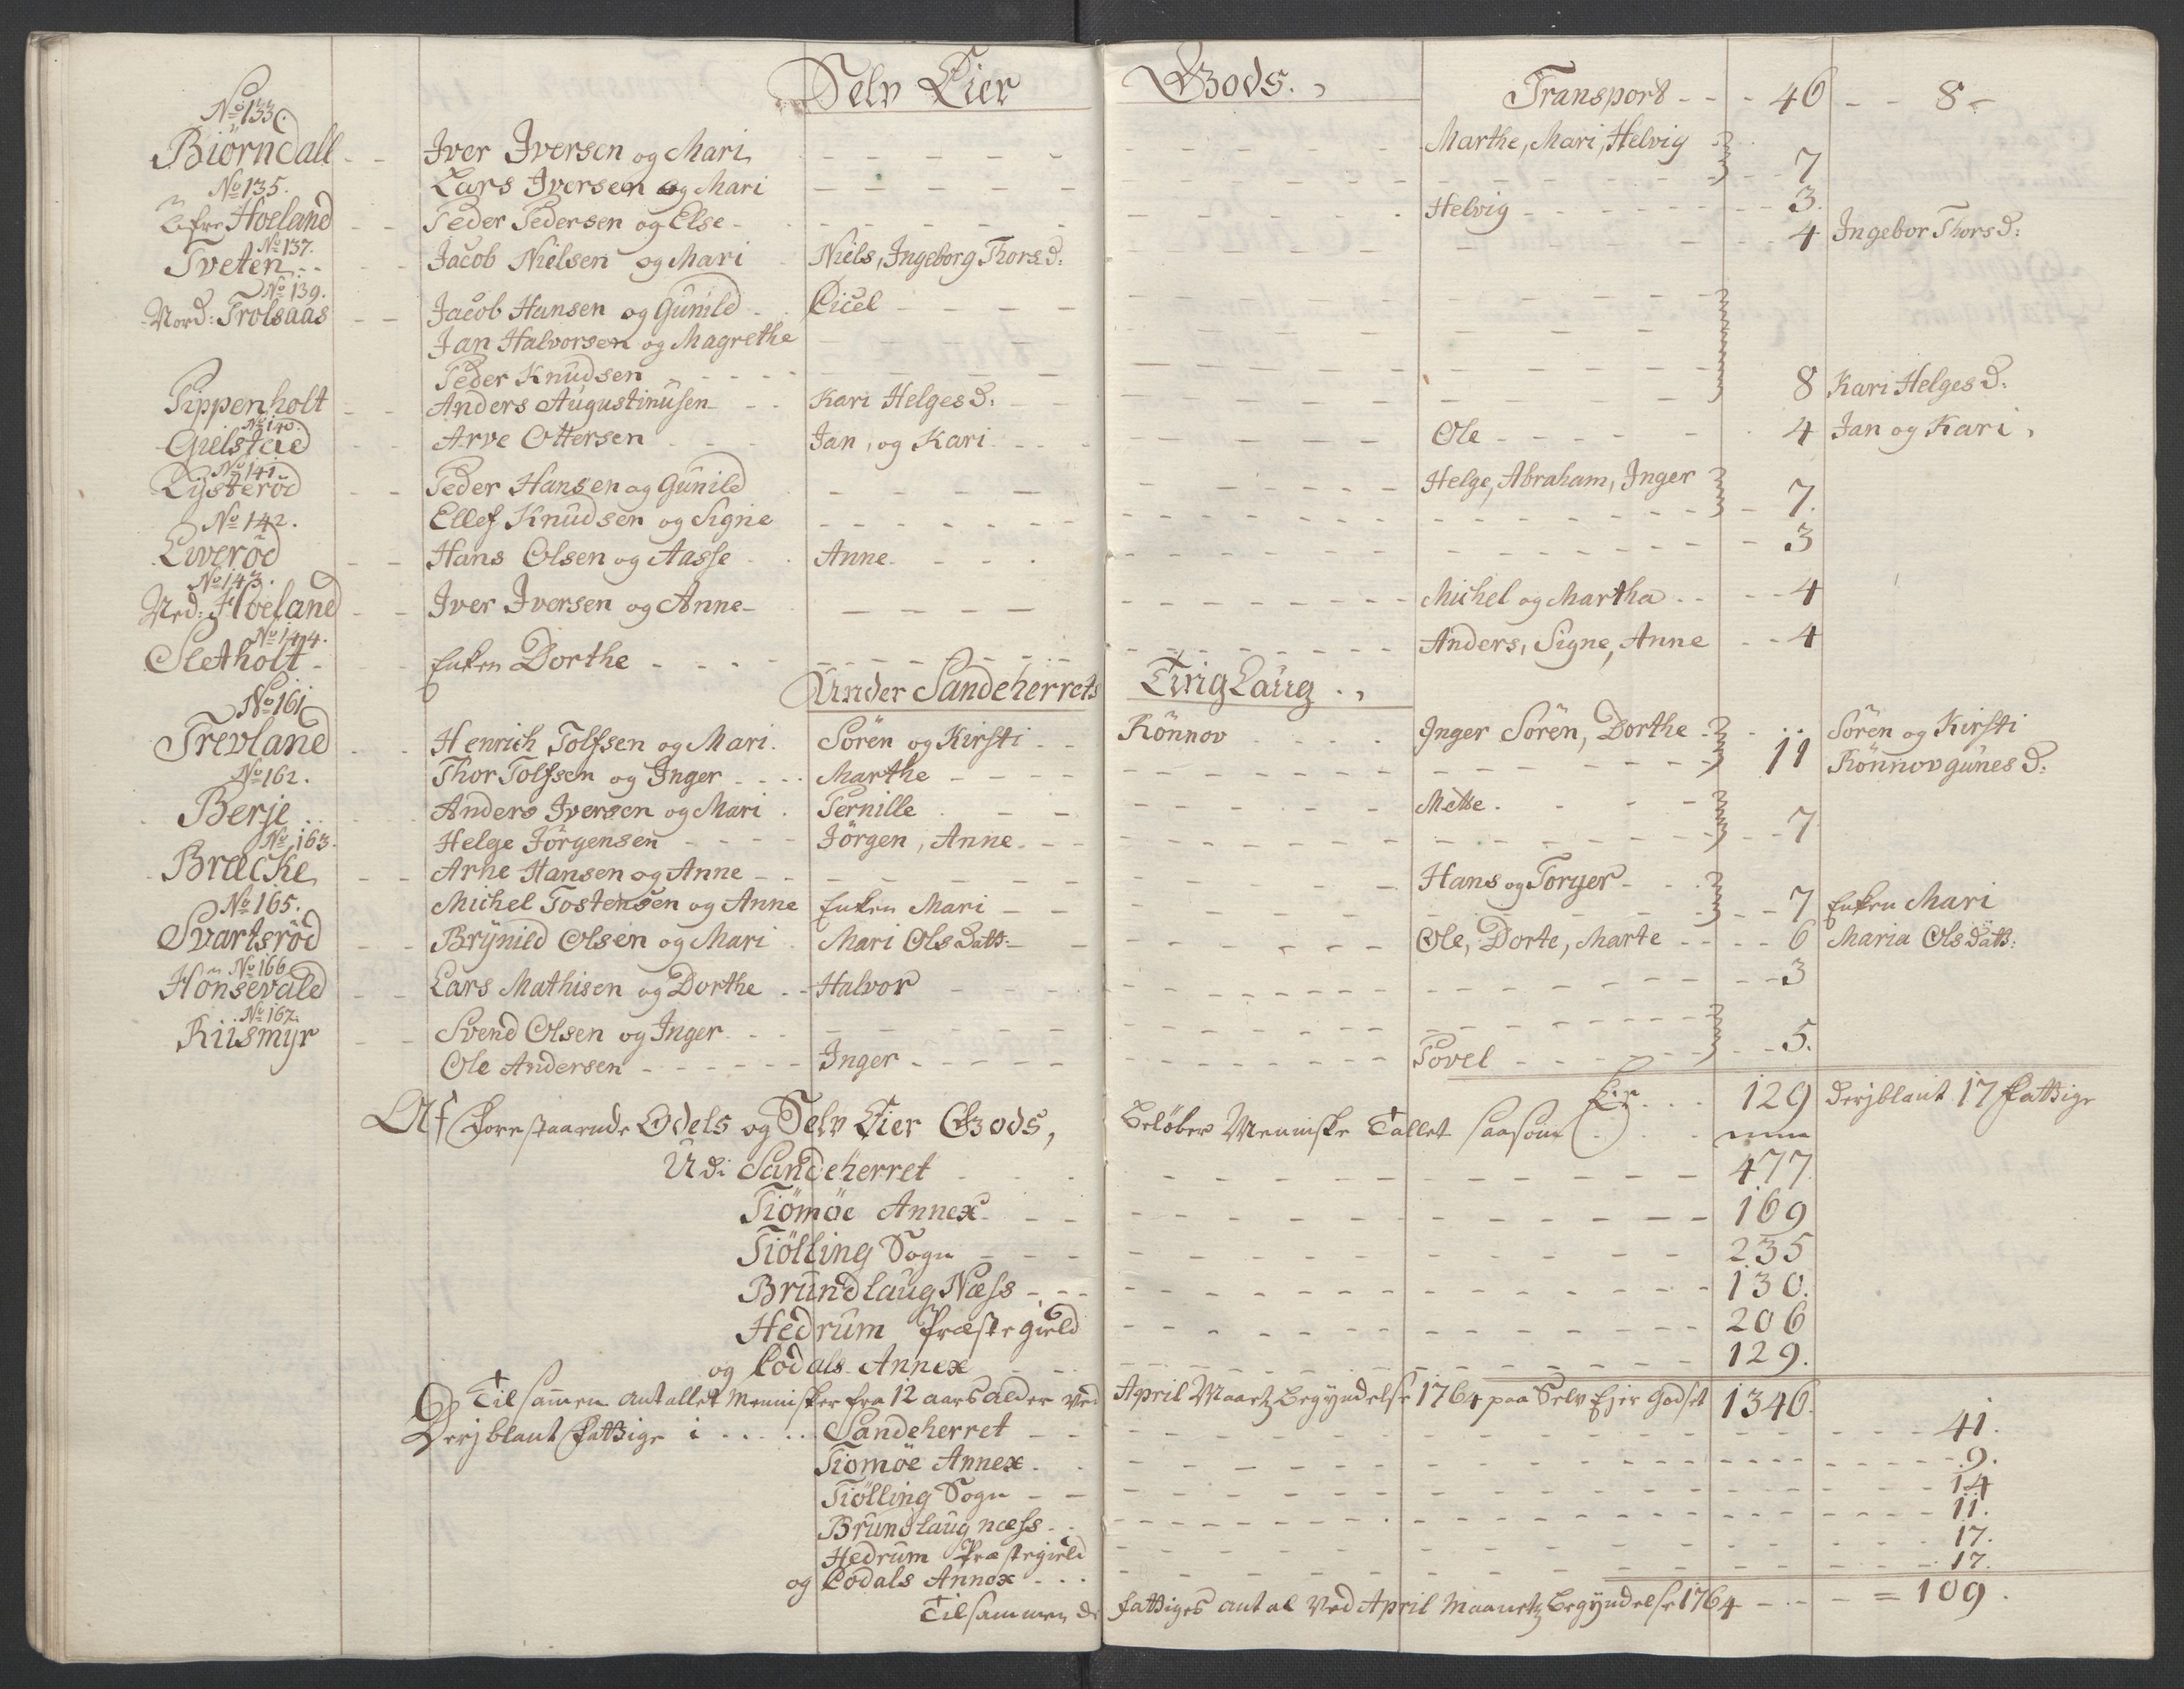 Selv Eier Gods.
Transport - - - 46 - - 8 -
No 133
Biörndall - - Iver Iversen og Mari - - - - Marthe, Mari, Helvig
Lars Iversen og Mari - - - - 7
No 135.
Öfre Hoeland - - Peder Pedersen og Else - - - - Helvig - - - - 3.
No 137.
Tveten - - Jacob Nielsen og Mari - Niels, Ingeborg Thorsd: - - - - 4 Ingebor Thorsd:
No 139.
Nord: Trolsaas - - Jacob Hansen og Gunild - Cicel - - - -
Jan Halvorsen og Magrethe - - - -
Peder Knudsen - - - -
Pippenholt - - Anders Augustinusen - - Kari Helgesd: - - - - 8 Kari Helgesd:
No 140.
Gielsteie - - Arve Ottersen - - - Jan, og Kari - - - - Ole - - - - 4 Jan og Kari,
No 141.
Lysteröd - - Peder Hansen og Gunild - - - - Helge, Abraham, Inger
Ellef Knudsen og Signe - - - - 7.
No 142.
Liveröd - - Hans Olsen og Aasse - Anne - - - - 3
No 143.
Ned: Hoeland - - Iver Iversen og Anne - - - - Michel og Martha - - - - 4
No 144.
Sletholt - - Enken Dorthe - - - - Anders, Signe, Anne - - 4
Under Sandeherrets Ting Laug.
No 161
Trevland - - Henrich Tolfsen og Mari. Sören og Kirsti - - Rönnov - - - - Inger Sören, Dorthe - - Sören og Kirsti
Thor Tolfsen og Inger - - - Marthe - - - - 11 Rönnov gunesd:
No 162.
Berje - - Anders Iversen og Mari. Pernille - - - - Mette - - -
Helge Jörgensen - - - Jörgen, Anne - - - - 7
No 163.
Bræcke - - Arne Hansen og Anne - - - - Hans og Torger - -
Michel Tostensen og Anne Enken Mari - - - - 7 Enken Mari
No 165.
Svartsröd - - Brynild Olsen og Mari. Mari Olsdatt: - - - - Ole, Dorte, Marte - - - - 6 Maria Olsdatt:
No 166
Hönsevald - - Lars Mathisen og Dorthe - - Halvor - - - - 3
No 167.
Riismyr - - Svend Olsen og Inger - - - -
Ole Andersen - - - - Inger - - - - Povel - - - - 5.
Er - - - 129 Derjblant 17 fattige
Af forestaaende Odels og Selv Eier Gods, Belöber Menniske Tallet saasom
Udi Sandeherret - - - - 477.
Tiömöe Annex - - - - 169
Tiölling Sogn - - - - 235
Brundlaug Næss - - - - 130.
Hedrum Præstegield - - - - 206
og Lodals Annex - - - - 129.
Tilsamen antallet Mennisker fra 12 aars alder ved April Maanetz begyndelse 1764 paa Selv Ejer Godset 1346.
Derjblant fattige i - - - - Sandeherret - - - - 41.
Tiomöe Annex - - - - 9.
Tiölling Sogn - - - - 14
Brundlaug næss - - - - 11.
Hedrum Præstegield - - - - 17.
og Lodals Annex - - - - 17.
Tilsammen de fattiges antal ved April Maanetz begyndelse 1764 - - - = 109.